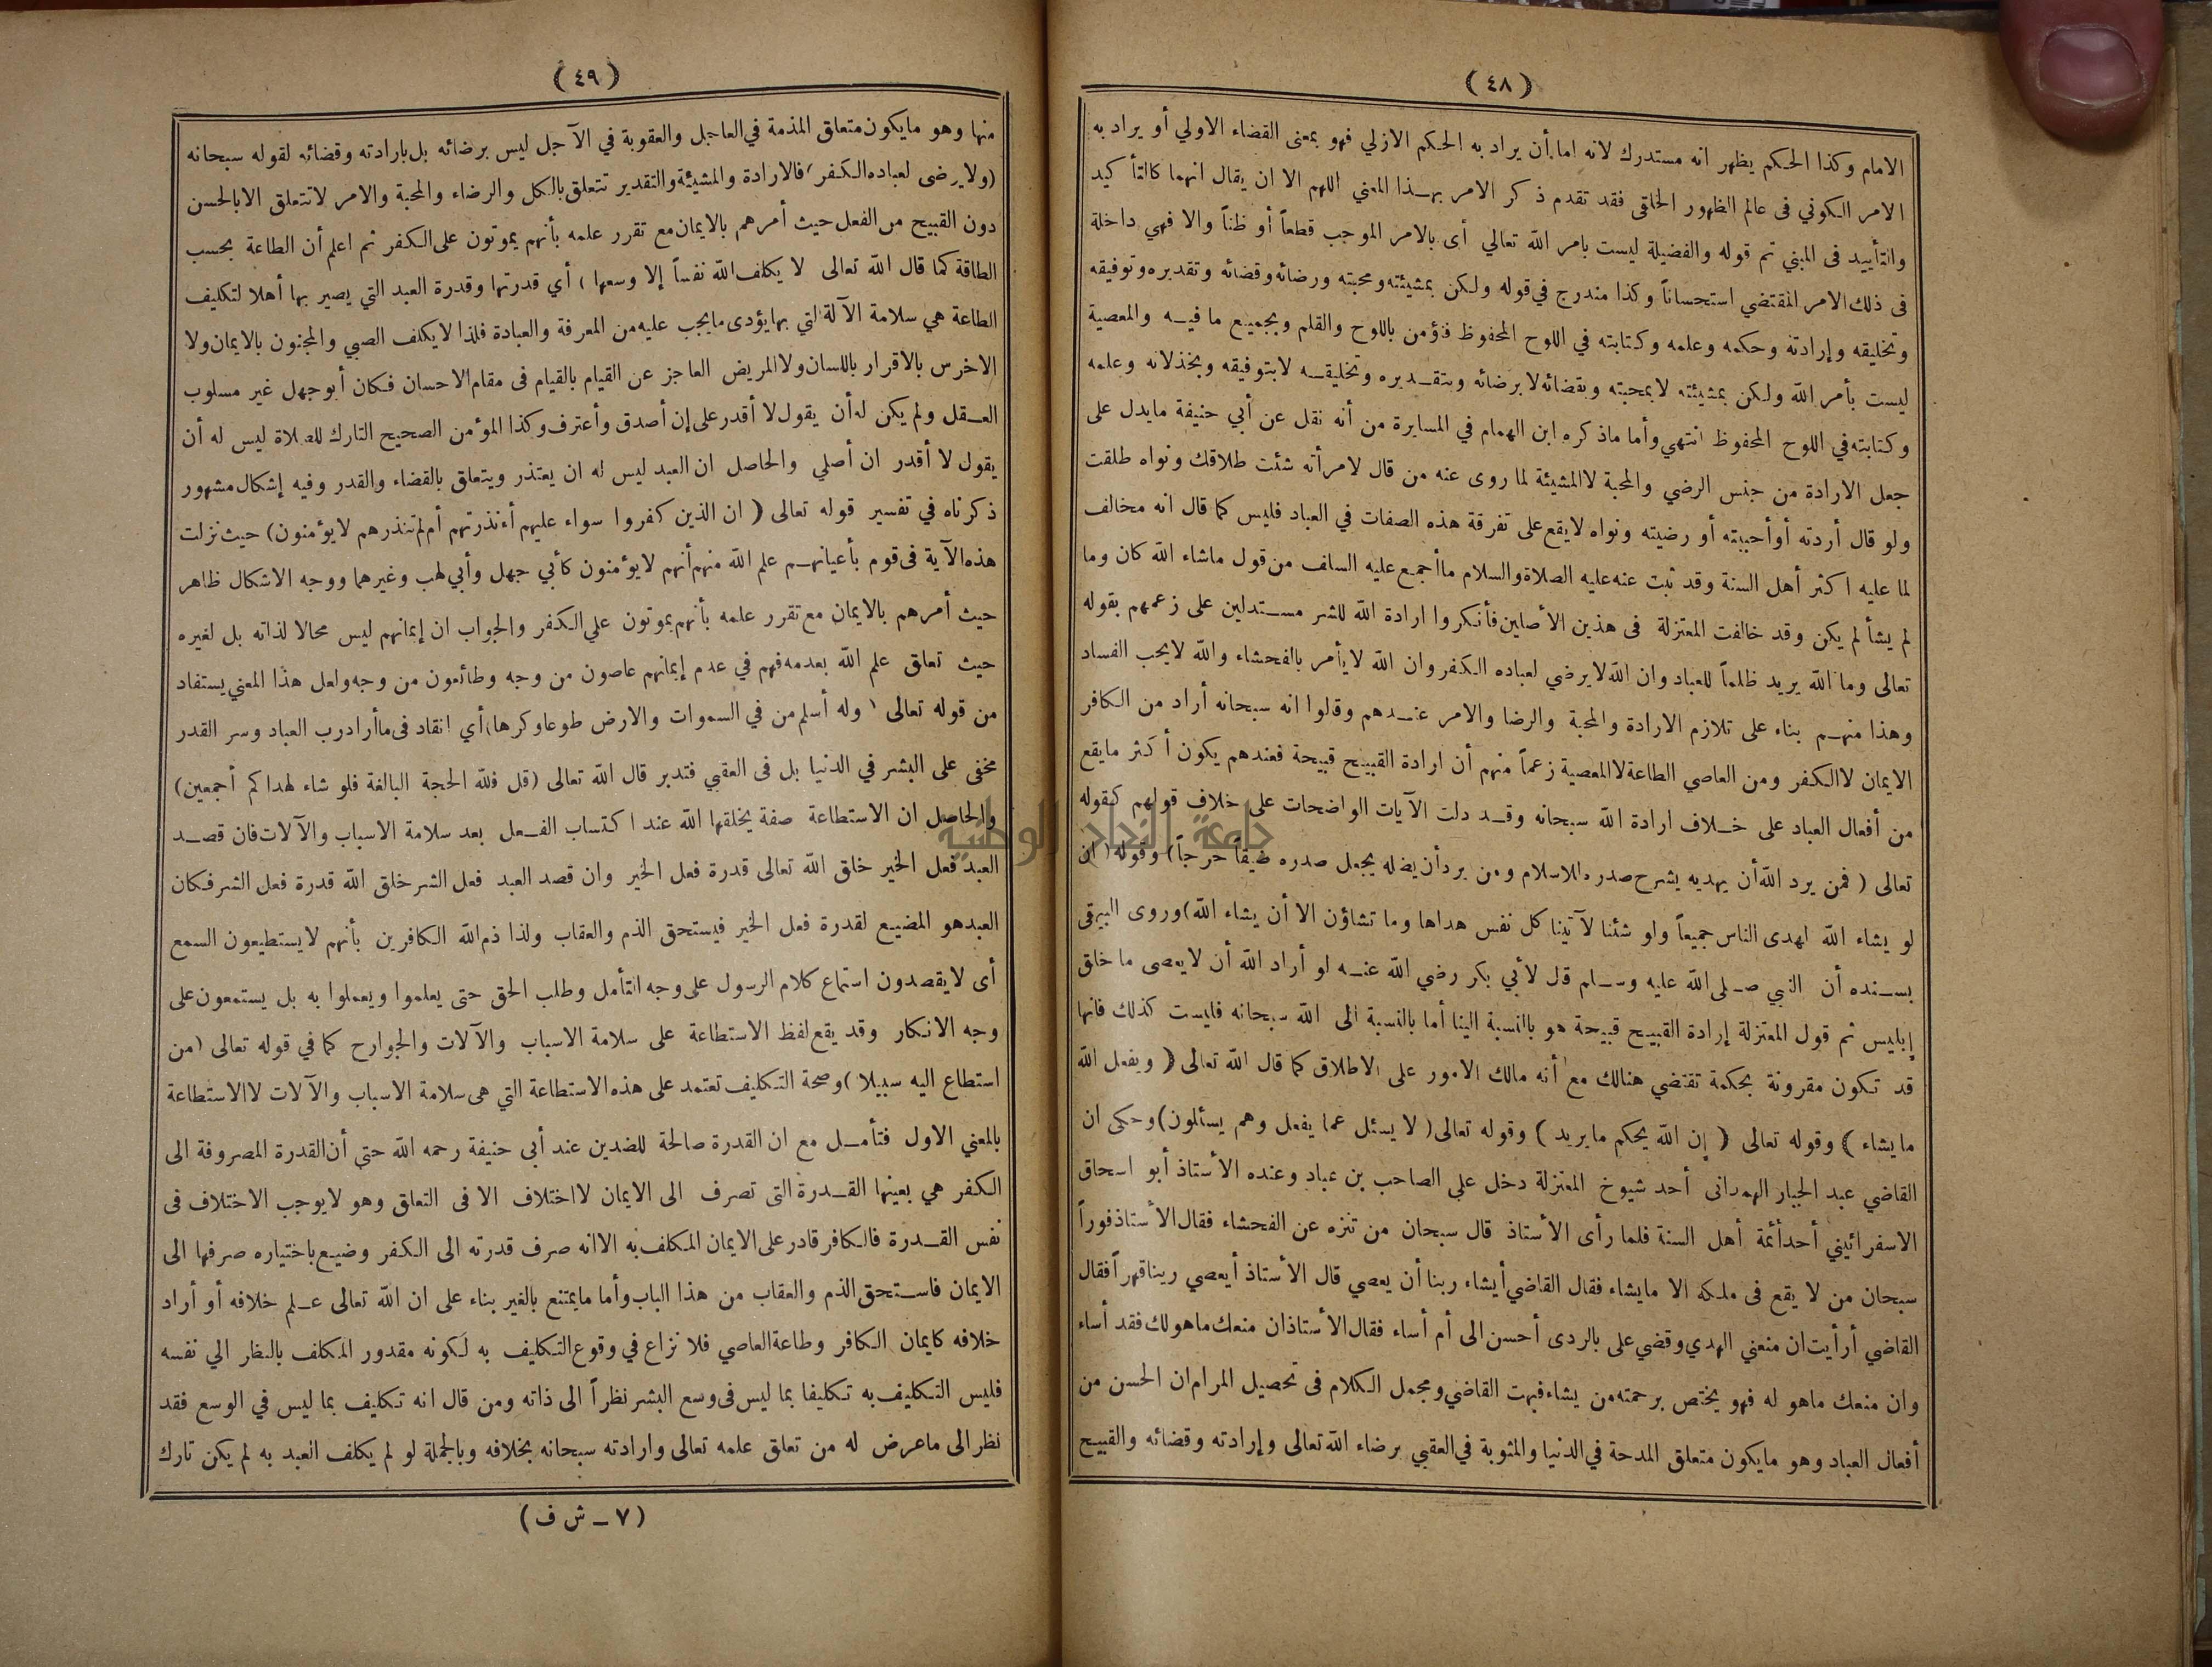 (٤٨)
الامام وكذا الحكم يظهر انه مستدرك لانه اما أن يراد به الحكم الازلي فهو بمعنى القضاء الاولي أو يراد به
الامر الكوني فى عالم الظهور الخلقى فقد تقدم ذكر الامر بهذا المعني اللهم الا ان يقال انهما كالتأ كيد
والتأييد فى المبني ثم قوله والفضيلة ليست بامر الله تعالي أى بالامر الموجب قطعاً أو ظناً والا فهي داخلة
فى ذلك الامر المقتضي استحساناً وكذا مندرج في قوله ولكن بمشيئته ومحبته ورضائه وقضائه وتقديره وتوفيقه
وتخليقه وإرادته وحكمه وعلمه وكتابته في اللوح المحفوظ فنؤمن باللوح والقلم وبجميع ما فيه والمعصية
ليست بأمر الله ولكن بمشيئته لا بمحبته وبقضائه لا برضائه وبتقديره وتخليقه لا بتوفيقه وبخذلانه وعلمه
وكتابته في اللوح المحفوظ انتهي وأما ماذكره ابن الهمام في المسايرة من أنه نقل عن أبي حنيفة مايدل على
جعل الارادة من جنس الرضي والمحبة لا المشيئة لما روى عنه من قال لامرأته شئت طلاقك ونواه طلقت
ولو قال أردته أو أحببته أو رضيته ونواه لا يقع على تفرقة هذه الصفات في العباد فليس كما قال انه مخالف
لما عليه اكثر أهل السنة وقد ثبت عنه عليه الصلاة والسلام ما أجمع عليه السلف من قول ماشاء الله كان وما
لم يشأ لم يكن وقد خالفت المعتزلة فى هذين الأصلين فأنكروا ارادة الله للشر مستدلين على زعمهم بقوله
تعالى وما الله يريد ظلماً للعباد وان الله لا يرضي لعباده الكفر وان الله لا يأمر بالفحشاء والله لا يحب الفساد
وهذا منهم بناء على تلازم الارادة والمحبة والرضا والامر عندهم وقالوا انه سبحانه أراد من الكافر
الايمان لا الكفر ومن العاصي الطاعة لا المعصية زعماً منهم أن ارادة القبيح قبيحة فعندهم يكون أكثر مايقع
من أفعال العباد على خلاف ارادة الله سبحانه وقد دلت الآيات الواضحات على خلاف قولهم كقوله
تعالى ( فمن يرد الله أن يهديه يشرح صدره للاسلام ومن يرد أن يضله يجعل صدره ضيقاً حرجاً) وقوله ( ان
لو يشاء الله لهدى الناس جميعاً ولو شئنا لآتينا كل نفس هداها وما تشاؤن الا أن يشاء الله) وروى البيهقى
بسنده أن النبي صلى الله عليه وسلم قل لأبي بكر رضي الله عنه لو أراد الله أن لا يعصى ما خلق
إبليس ثم قول المعتزلة إرادة القبيح قبيحة هو بالنسبة الينا أما بالنسبة الى الله سبحانه فليست كذلك فانها
قد تكون مقرونة بحكمة تقتضي هنالك مع أنه مالك الامور على الاطلاق كما قال الله تعالى ( ويفعل الله
مايشاء ) وقوله تعالى ( إن الله يحكم مايريد ) وقوله تعالى ( لا يسئل عما يفعل وهم يسألون) وحكى ان
القاضي عبد الجبار الهمدانى أحد شيوخ المعتزلة دخل على الصاحب بن عباد وعنده الأستاذ أبو اسحاق
الاسفرائيني أحد أئمة أهل السنة فلما رأى الأستاذ قال سبحان من تنزه عن الفحشاء فقال الأستاذ فوراً
سبحان من لا يقع فى ملكه الا مايشاء فقال القاضي أيشاء ربنا أن يعصي قال الأستاذ أيعصي ربنا قهراً فقال
القاضي أرأيت ان منعني الهدي وقضي على بالردى أحسن الى أم أساء فقال الأستاذ ان منعك ماهو لك فقد أساء
وان منعك ماهو له فهو يختص برحمته من يشاء فبهت القاضي ومجمل الكلام فى تحصيل المرام ان الحسن من
أفعال العباد وهو مايكون متعلق المدحة في الدنيا والمثوبة في العقبي برضاء الله تعالى وإرادته وقضائه والقبيح
(٤٩)
منها وهو مايكون متعلق المذمة في العاجل والعقوبة في الآجل ليس برضائه بل بارادته وقضائه لقوله سبحانه
(ولا يرضى لعباده الكفر) فالارادة والمشيئة والتقدير تتعلق بالكل والرضاء والمحبة والامر لا تتعلق الا بالحسن
دون القبيح من الفعل حيث أمرهم بالايمان مع تقرر علمه بأنهم يموتون على الكفر ثم اعلم أن الطاعة بحسب
الطاقة كما قال الله تعالى لا يكلف الله نفساً إلا وسعها ) أي قدرتها وقدرة العبد التي يصير بها أهلا لتكليف
الطاعة هي سلامة الآلة التي بها يؤدى مايجب عليه من المعرفة والعبادة فلذا لا يكلف الصبي والمجنون بالايمان ولا
الاخرس بالاقرار باللسان ولا المريض العاجز عن القيام بالقيام فى مقام الاحسان فكان أبو جهل غير مسلوب
العقل ولم يكن له أن يقول لا أقدر على إن أصدق وأعترف وكذا المؤمن الصحيح التارك للصلاة ليس له أن
يقول لا أقدر ان أصلي والحاصل ان العبد ليس له ان يعتذر ويتعلق بالقضاء والقدر وفيه إشكال مشهور
ذكرناه في تفسير قوله تعالى ( ان الذين كفروا سواء عليهم أءنذرتهم أم لم تنذرهم لا يؤمنون) حيث نزلت
هذه الآية فى قوم بأعيانهم علم الله منهم أنهم لا يؤمنون كأبي جهل وأبي لهب وغيرهما ووجه الاشكال ظاهر
حيث أمرهم بالايمان مع تقرر علمه بأنهم يموتون على الكفر والجواب ان إيمانهم ليس محالا لذاته بل لغيره
حيث تعلق علم الله بعدمه فهم في عدم إيمانهم عاصون من وجه وطائعون من وجه ولعل هذا المعني يستفاد
من قوله تعالى ( وله أسلم من في السموات والارض طوعا وكرها) أي انقاد فى ما أراد رب العباد وسر القدر
مخفى على البشر في الدنيا بل فى العقبي فتدبر قال الله تعالى (قل فلله الحجة البالغة فلو شاء لهداكم أجمعين)
والحاصل ان الاستطاعة صفة يخلقها الله عند اكتساب الفعل بعد سلامة الاسباب والآلات فان قصد
العبد فعل الخير خلق الله تعالى قدرة فعل الخير وان قصد العبد فعل الشر خلق الله قدرة فعل الشر فكان
العبد هو المضيع لقدرة فعل الخير فيستحق الذم والعقاب ولذا ذم الله الكافرين بأنهم لا يستطيعون السمع
أى لا يقصدون استماع كلام الرسول على وجه التأمل وطلب الحق حتى يعلموا ويعملوا به بل يستمعون على
وجه الانكار وقد يقع لفظ الاستطاعة على سلامة الاسباب والآلات والجوارح كما في قوله تعالى (من
استطاع اليه سبيلا ) وصحة التكليف تعتمد على هذه الاستطاعة التي هى سلامة الاسباب والآلات لا الاستطاعة
بالمعني الاول فتأمل مع ان القدرة صالحة للضدين عند أبى حنيفة رحمه الله حتى أن القدرة المصروفة الى
الكفر هي بعينها القدرة التى تصرف الى الايمان لا اختلاف الا فى التعلق وهو لا يوجب الاختلاف فى
نفس القدرة فالكافر قادر على الايمان المكلف به الا انه صرف قدرته الى الكفر وضيع باختياره صرفها الى
الايمان فاستحق الذم والعقاب من هذا الباب وأما مايمتنع بالغير بناء على ان الله تعالى علم خلافه أو أراد
خلافه كايمان الكافر وطاعة العاصي فلا نزاع في وقوع التكليف به لكونه مقدور المكلف بالنظر الي نفسه
فليس التكليف به تكليفا بما ليس فى وسع البشر نظراً الى ذاته ومن قال انه تكليف بما ليس في الوسع فقد
نظر الى ماعرض له من تعلق علمه تعالى وارادته سبحانه بخلافه وبالجملة لو لم يكلف العبد به لم يكن تارك
(٧ ـ ش ف)
جامعة النجاح الوطنية